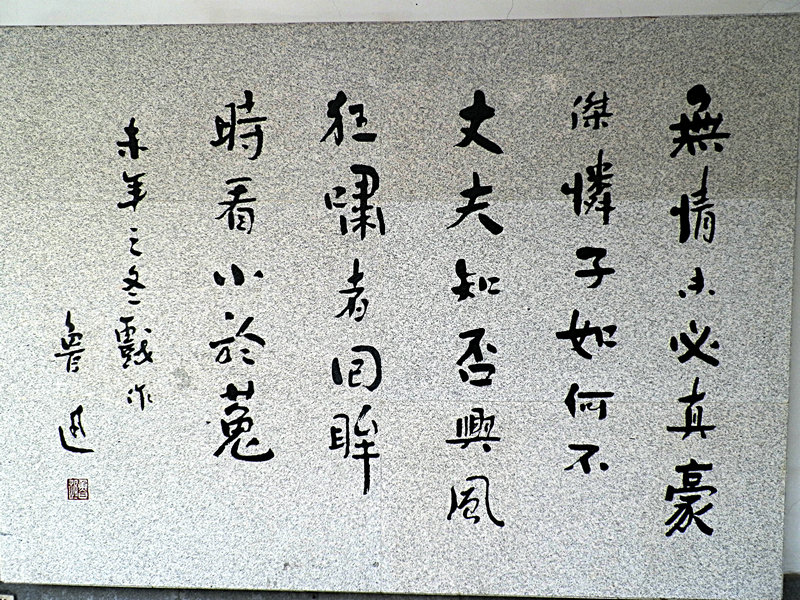 無情未必真豪
傑憐子如何不
丈夫知否興風
狂嘯者回眸
時看小於菟
未年之冬戲作
魯迅